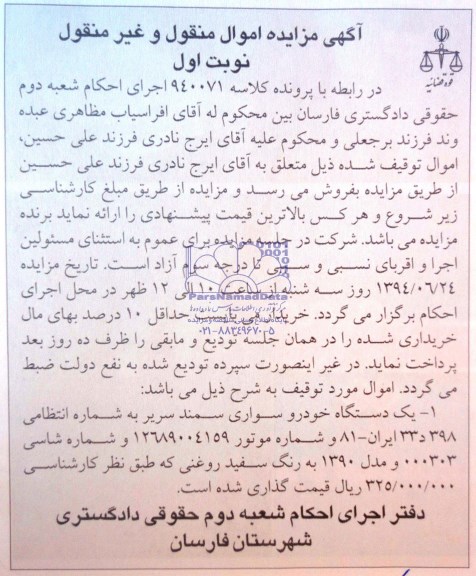 آگهی مزایده اموال منقول و غیر منقول
نوبت اول
قوه قضائیه
در رابطه با پرونده کلاسه ۹۴۰۰۷۱ اجرای احکام شعبه دوم
حقوقی دادگستری فارسان بین محکوم له آقای افراسیاب مظاهری عبده
وند فرزند برجعلی و محکوم علیه آقای ایرج نادری فرزند علی حسین،
اموال توقیف شده ذیل متعلق به آقای ایرج نادری فرزند علی حسین
از طریق مزایده بفروش می رسد و مزایده از طریق مبلغ کارشناسی
زیر شروع و هر کس بالاترین قیمت پیشنهادی را ارائه نماید برنده
مزایده می باشد. شرکت در جلسه مزایده برای عموم به استثنای مسئولین
اجرا و اقربای نسبی و سببی تا درجه سوم آزاد است. تاریخ مزایده
۱۳۹۴/۰۶/۲۴ روز سه شنبه از ساعت ۱۰ الی ۱۲ ظهر در محل اجرای
ParsNamadData
احکام برگزار می گردد. خریدار می بایست حداقل ۱۰ درصد بهای مال
۰۲۱-۸۸۳۴۹۶۷۰-۵
خریداری شده را در همان جلسه تودیع و مابقی را ظرف ده روز بعد
پرداخت نماید. در غیر اینصورت سپرده تودیع شده به نفع دولت ضبط
می گردد. اموال مورد توقیف به شرح ذیل می باشد:
۱- یک دستگاه خودرو سواری سمند سریر به شماره انتظامی
۳۹۸ د۳۳ ایران-۸۱ و شماره موتور ۱۲۶۸۹۰۰۴۱۵۹ و شماره شاسی
۰۰۰۳۰۳ و مدل ۱۳۹۰ به رنگ سفید روغنی که طبق نظر کارشناسی
۳۲۵/۰۰۰/۰۰۰ ریال قیمت گذاری شده است.
دفتر اجرای احکام شعبه دوم حقوقی دادگستری
شهرستان فارسان